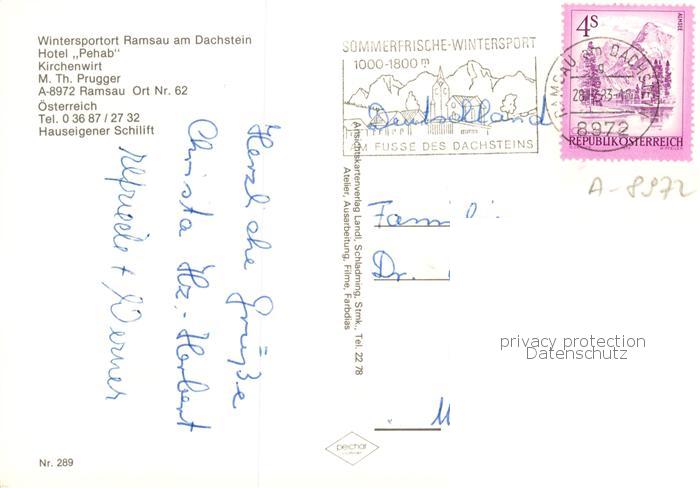 Wintersportort Ramsau am Dachstein
Hotel „Pehab"
Kirchenwirt
M. Th. Prugger
A-8972 Ramsau Ort Nr. 62
Österreich
Tel. 0 36 87 / 27 32
Hauseigener Schilift
Herzliche Grüße
Christa Hz.- Herbert
Werner
Nr. 289
Ansichtskartenverlag Landl, Schladming, Stmk., Tel. 22 78
Atelier, Ausarbeitung, Filme, Farbdias
SOMMERFRISCHE-WINTERSPORT
1000-1800 m
AM FUSSE DES DACHSTEINS
Deutschland
RAMSAU am DACHSTEIN
8972
4S
ALMSEE
REPUBLIK ÖSTERREICH
A-8972
Fami
Dr.
M
privacy protection
Datenschutz